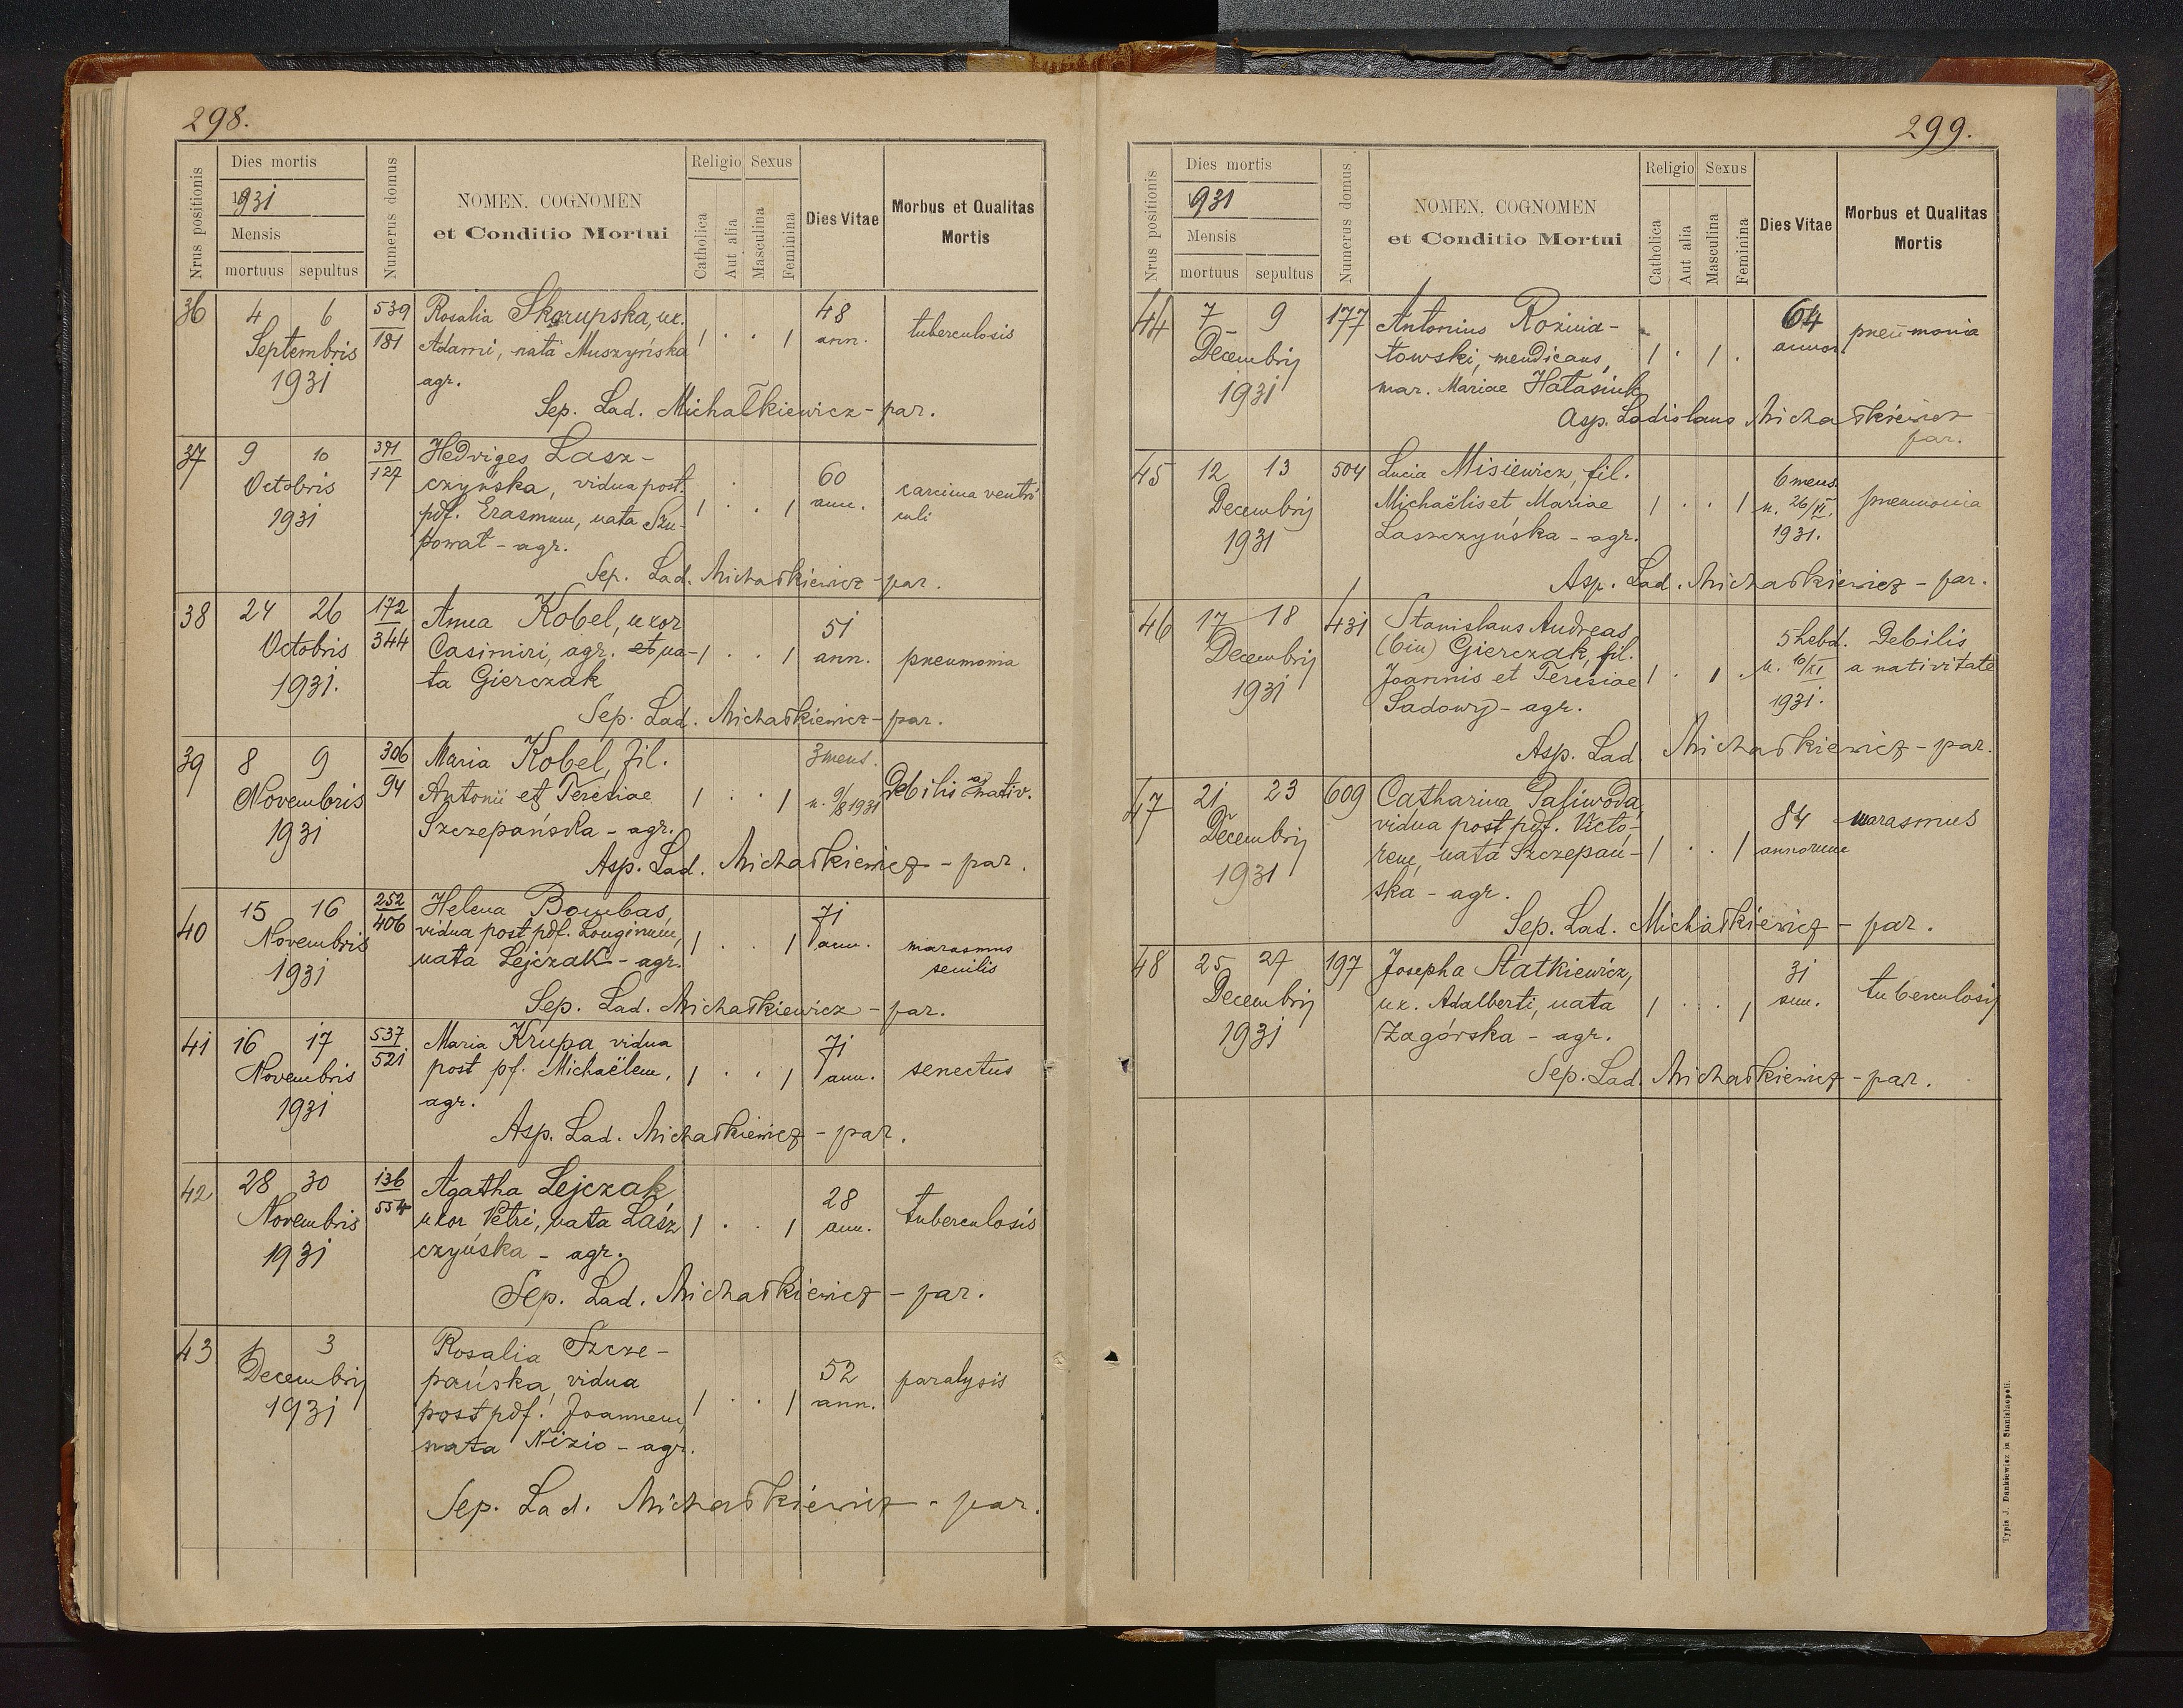 298.
Nrus positionis
Dies mortis
1931
Mensis
mortuus sepultus
Numerus domus
NOMEN, COGNOMEN
et Conditio Mortui
Religio
Catholica
Aut alia
Sexus
Masculina
Feminina
Dies Vitae
Morbus et Qualitas
Mortis
36 4 6 539 Rosalia Skorupska, ux. 48
Septembris 181 Adami, nata Muszyńska 1 . . 1 ann. tuberculosis
1931 agr.
Sep. Lad. Michałkiewicz - par.
37 9 10 391 Hedviges Lasz-
Octobris 127 czyńska, vidua post. 60 carcima ventri
1931 pdf. Erasmum, nata Szu- 1 . . 1 ann. culi
powat - agr.
Sep. Lad. Michałkiewicz - par.
38 24 26 172 Anna Kobel, uxor 51
Octobris 344 Casimiri, agr. et na- 1 . . 1 ann. pneumonia
1931. ta Gierczak
Sep. Lad. Michałkiewicz - par.
39 8 9 306 Maria Kobel, fil. 3 mens.
Novembris 94 Antonii et Teresiae 1 . . 1 n. 9/8 1931 Debilis a nativ.
1931 Szczepańska - agr.
Asp. Lad. Michałkiewicz - par.
40 15 16 252 Helena Bombas, 71
Novembris 406 vidua post pdf. Longinum, 1 . . 1 ann. marasmus
1931 nata Lejczak - agr. senilis
Sep. Lad. Michałkiewicz - par.
41 16 17 537 Maria Krupa vidua 71
Novembris 521 post pf. Michaëlem, 1 . . 1 ann. senectus
1931 agr.
Asp. Lad. Michałkiewicz - par.
42 28 30 136 Agatha Lejczak 28
Novembris 554 uxor Petri, nata Lasz 1 . . 1 ann. tuberculosis
1931 czyńska - agr.
Sep. Lad. Michałkiewicz - par.
43 1 3 Rosalia Szcze-
Decembrij pańska, vidua 52 paralysis
1931 post pdf. Joannem, 1 . . 1 ann.
nata Nizio - agr.
Sep. Lad. Michałkiewicz - par.
299.
Nrus positionis
Dies mortis
1931
Mensis
mortuus sepultus
Numerus domus
NOMEN, COGNOMEN
et Conditio Mortui
Religio
Catholica
Aut alia
Sexus
Masculina
Feminina
Dies Vitae
Morbus et Qualitas
Mortis
44 7 9 177 Antonius Roznia- 64 pneumonia
Decembrij towski, mendicans, 1 . 1 . annor
1931 mar. Mariae Hałasiuk
Asp. Ladislaus Michałkiewicz
par.
45 12 13 504 Lucia Misiewicz, fil. 6 mens.
Decembrij Michaëlis et Mariae 1 . . 1 n. 26/VI. pneumonia
1931 Laszczyńska - agr. 1931.
Asp. Lad. Michałkiewicz - par.
46 17 18 431 Stanislaus Andreas
Decembrij (bin) Gierczak, fil. 5 hebd. Debilis
1931 Joannis et Teresiae 1 . 1 . n. 10/XI a nativitate
Sadowy - agr. 1931.
Asp. Lad. Michałkiewicz - par.
47 21 23 609 Catharina Paliwoda, 84 marasmus
Decembrij vidua post pdf. Victo-
1931 rem, nata Szczepań- 1 . . 1 annorum
ska - agr.
Sep. Lad. Michałkiewicz - par.
48 25 27 197 Josepha Statkiewicz, 31
Decembrij ux. Adalberti, nata 1 . . . 1 ann. tuberculosis
1931 Zagórska - agr.
Sep. Lad. Michałkiewicz - par.
Typis J. Dankiewicz in Stanislaopoli.